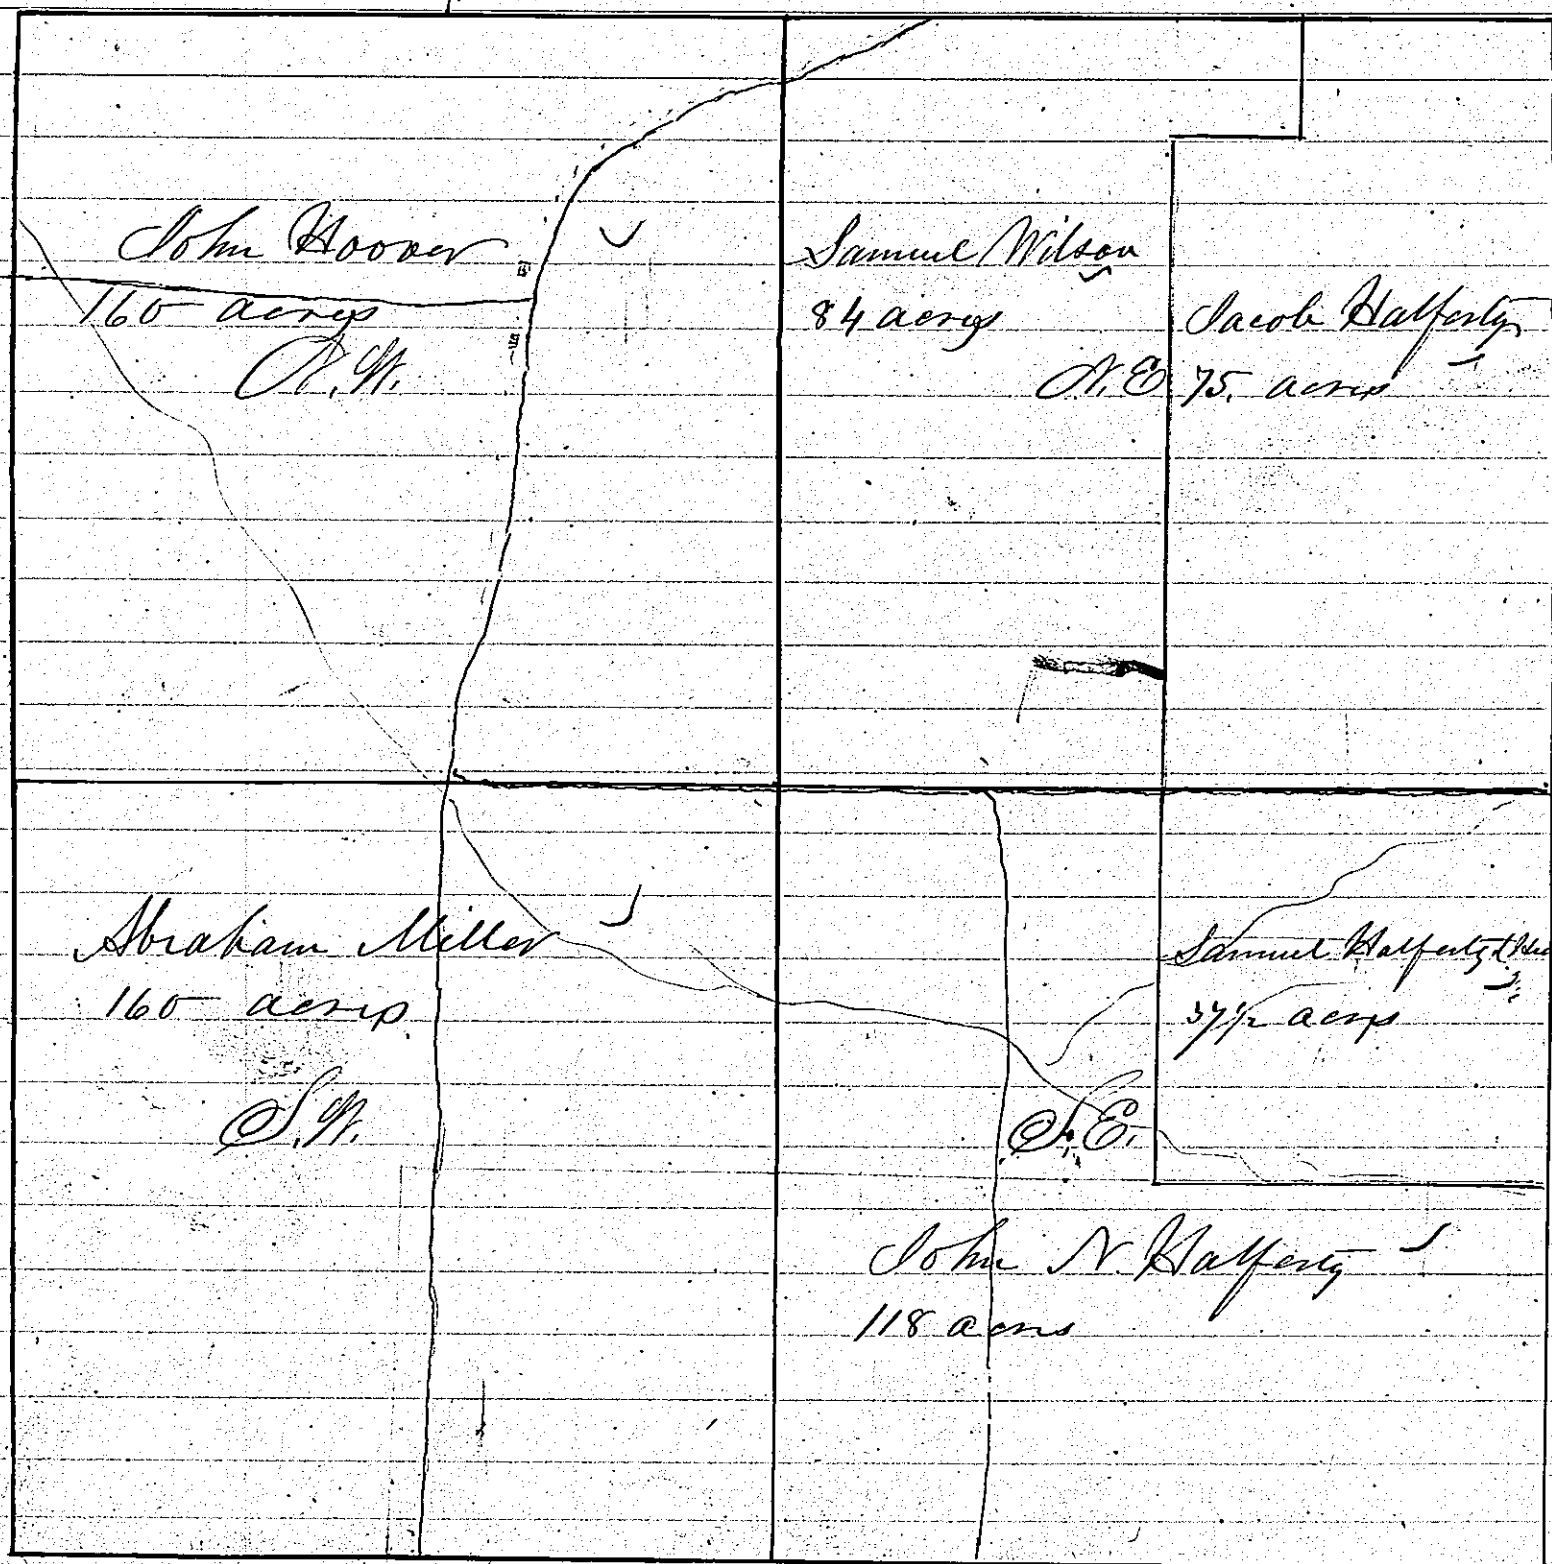 John Hoover
160 acres
N.W.
Samuel Wilson
84 acres
N.E
Jacob Halferty
75. acres
Abraham Miller
160 acres
S.W.
Samuel Halferty
37 1/2 acres
S.E.
John N. Halferty
118 acres